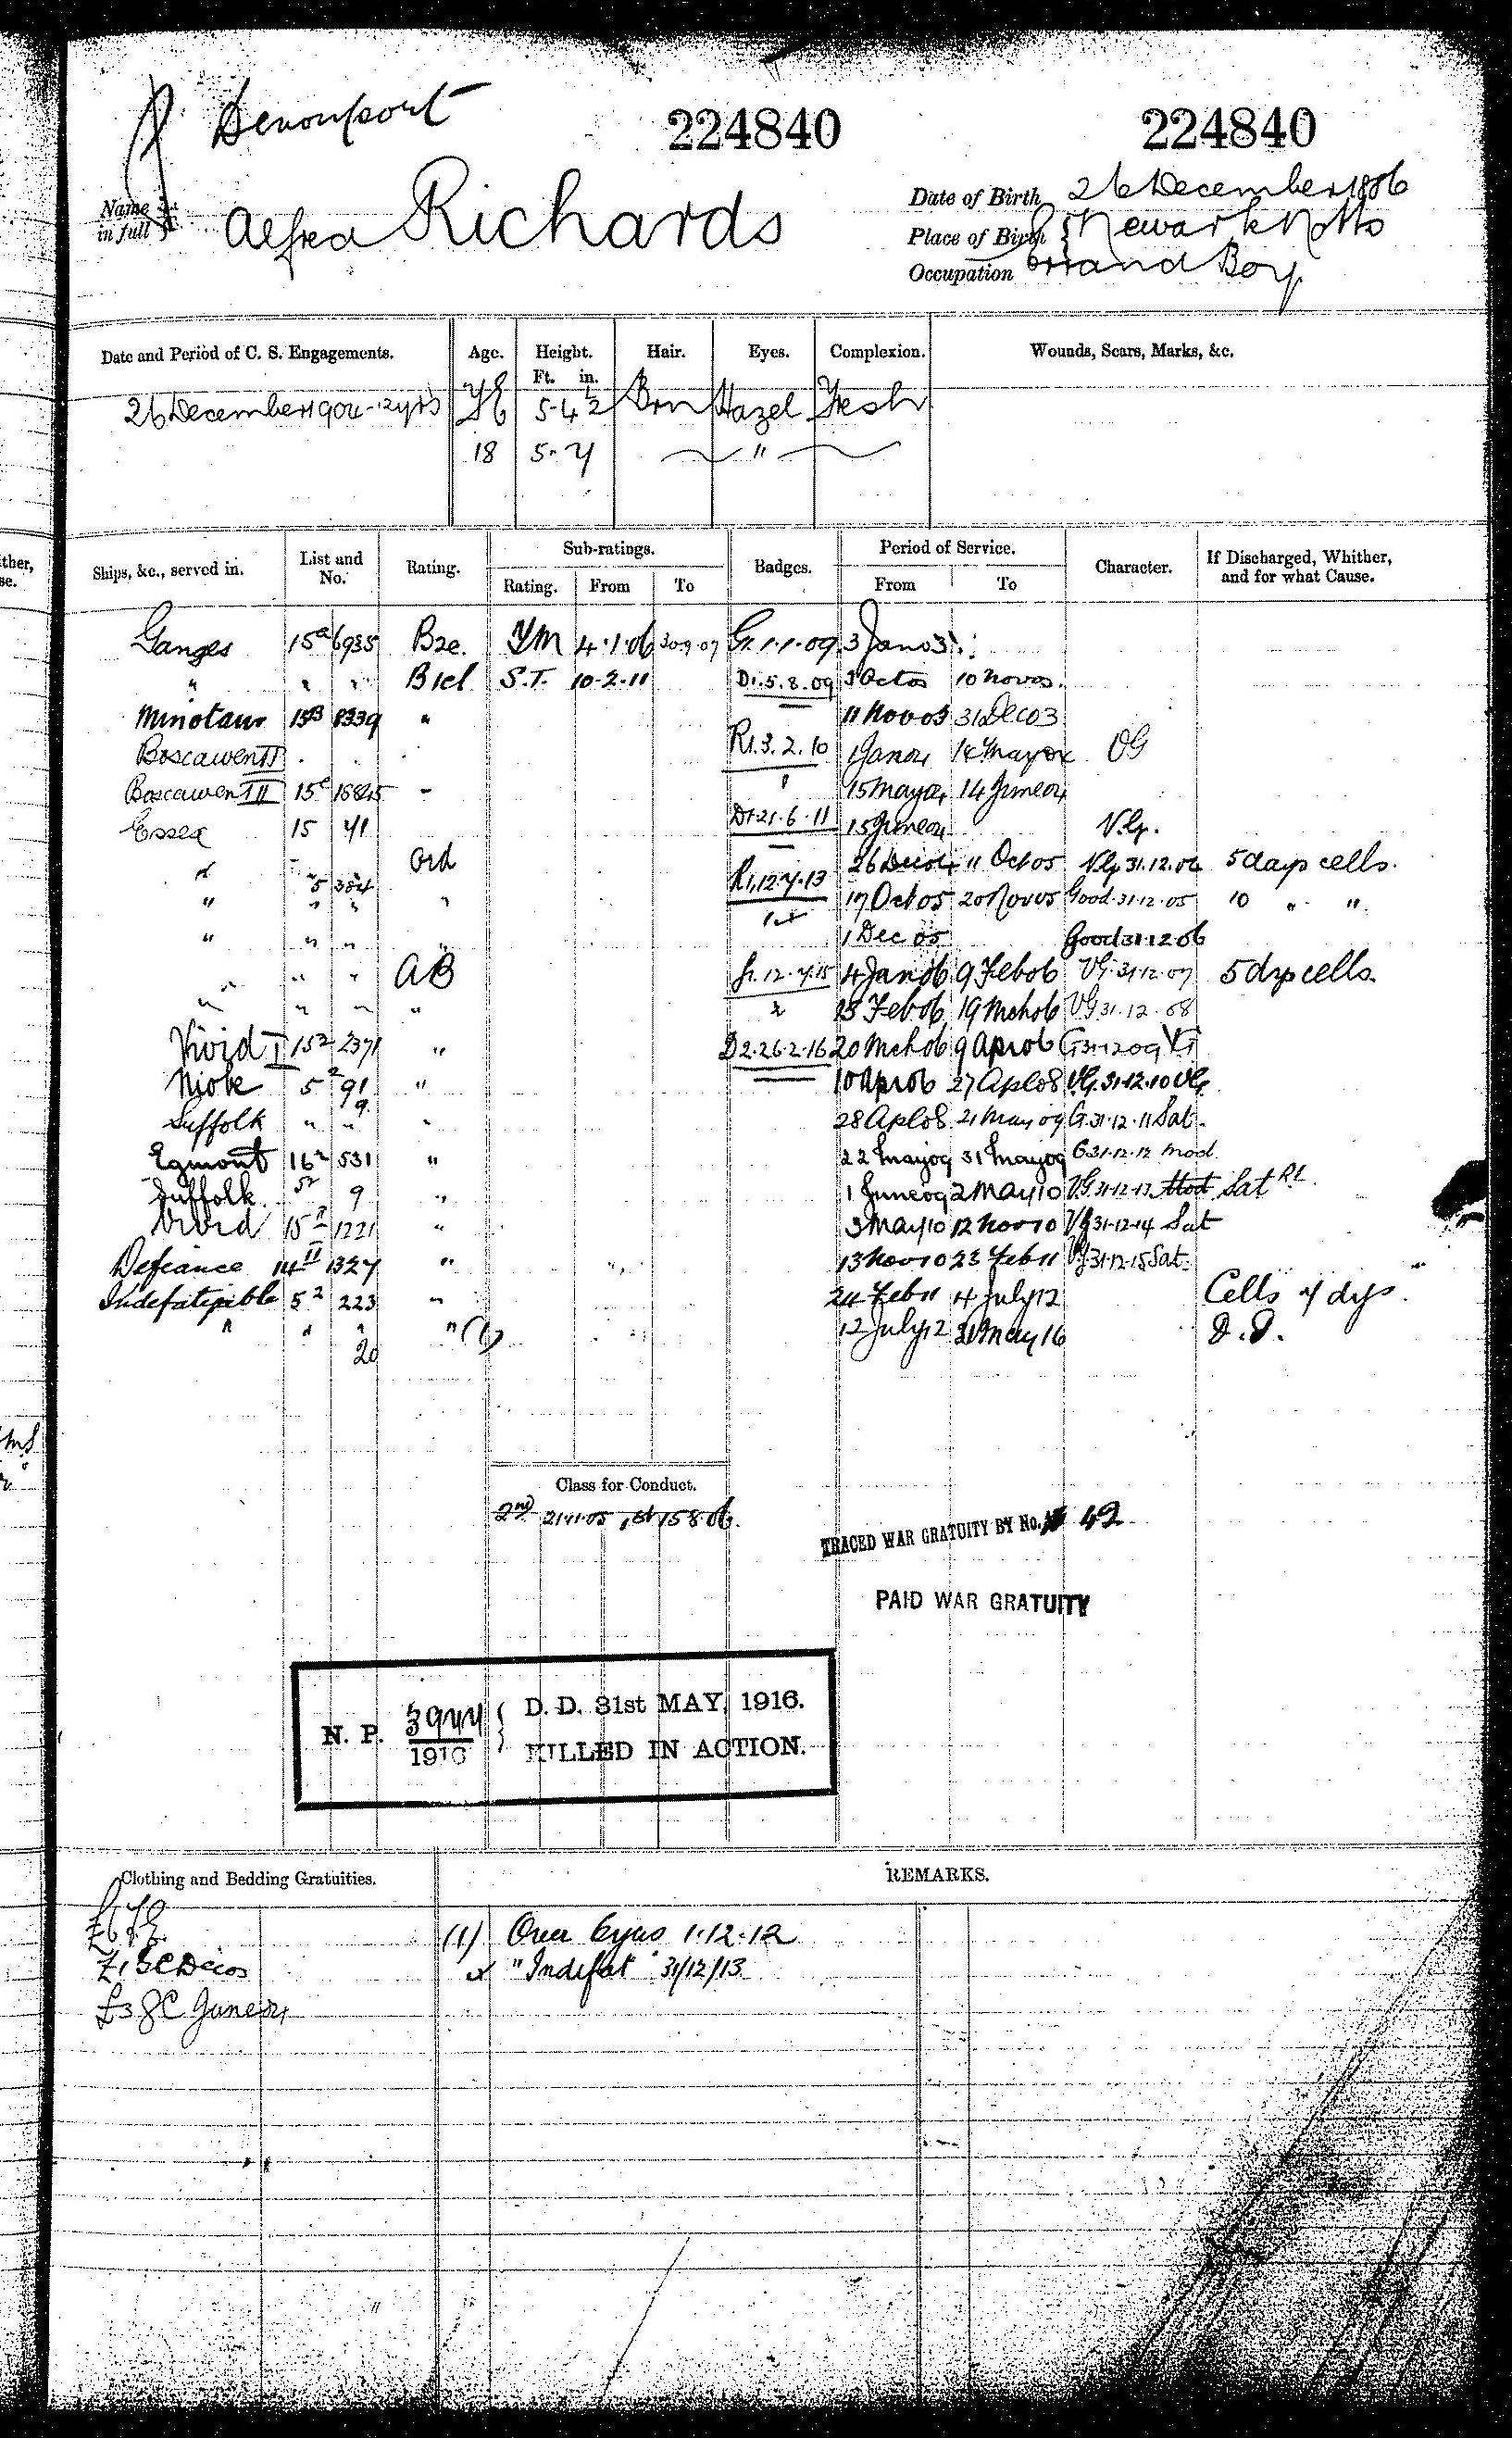 Devonport
224840 224840
Name in full Alfred Richards
Date of Birth 26 December 1886
Place of Birth Newark Notts
Occupation Errand Boy
Date and Period of C. S. Engagements. Age. Height. Hair. Eyes. Complexion. Wounds, Scars, Marks, &c.
Ft. in.
26 December 1904 - 12 yrs 5-4½ Brn Hazel Fresh
18 5-7 "
Ships, &c., served in. List and No. Rating. Sub-ratings. Badges. Period of Service. Character. If Discharged, Whither, and for what Cause.
Rating. From To From To
Ganges 15a 6935 B2c. 4.1.06 30.9.07 Gr.1.1.09 3 Jan 03
" " " B1cl S.T. 10-2-11 D1.5.8.09 3 Oct 03 10 Nov 03
Minotaur 15B 8339 " 11 Nov 03 31 Dec 03
Boscawen II R1.3.2.10 1 Jan 04 14 May 04 VG
Boscawen III 15c 16845 15 May 04 14 June 04
Essex 15 41 D1.21.6.11 15 June 04 V.G.
" 5 384 Ord R1.12.7.13 26 Dec 04 11 Oct 05 VG 31.12.04 5 days cells.
" " " " 17 Oct 05 20 Nov 05 Good 31.12.05 10 " "
" " " " 1 Dec 05 Good 31.12.06
" " " AB Gr.12.7.15 4 Jan 06 9 Feb 06 VG 31.12.07 5 dys cells.
" " " " 2 15 Feb 06 19 Mch 06 VG 31.12.08
Vivid I 15² 2371 " D2.26.2.16 20 Mch 06 9 Apr 06 G 31.12.09 VG
Niobe 5² 91 " 10 Apr 06 27 Apl 08 VG 31.12.10 VG
Suffolk " 9 " 28 Apl 08 21 May 09 G 31.12.11 Sat.
Egmont 16² 531 " 22 May 09 31 May 09 G 31.12.12 Mod.
Suffolk 5² 9 " 1 June 09 2 May 10 VG 31.12.13 Mod Sat
Vivid 15 1221 " 3 May 10 12 Nov 10 VG 31.12.14 Sat
Defiance 14 1327 " 13 Nov 10 23 Feb 11 VG 31.12.15 Sat.
Indefatigable 5² 223 " 24 Feb 11 4 July 12 Cells 7 dys.
" " " " (1) 12 July 12 31 May 16 D.D.
20
Class for Conduct.
2nd 21.11.05 1st 15.8.06.
TRACED WAR GRATUITY BY No. 42
PAID WAR GRATUITY
N. P. 3944/1916 D. D. 31st MAY, 1916.
KILLED IN ACTION.
Clothing and Bedding Gratuities. REMARKS.
(1) Over 6 yrs 1.12.12
£3 June 04
"Indefat" 31/12/13